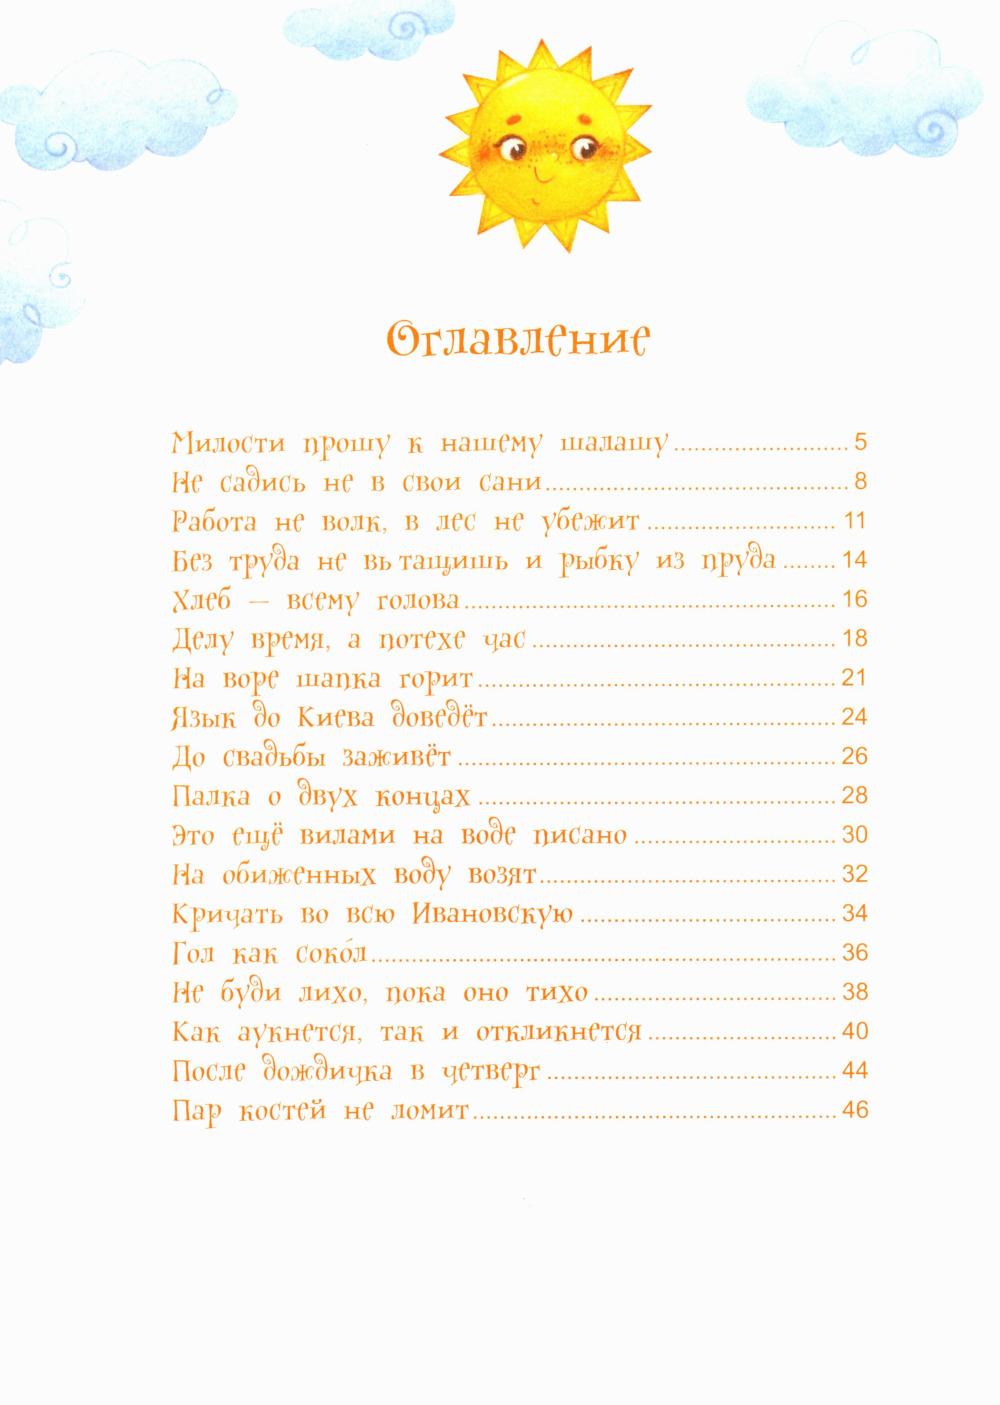 Оглавление
Милости прошу к нашему шалашу 5
Не садись не в свои сани 8
Работа не волк, в лес не убежит 11
Без труда не вытащишь и рыбку из пруда 14
Хлеб — всему голова 16
Делу время, а потехе час 18
На воре шапка горит 21
Язык до Киева доведёт 24
До свадьбы заживёт 26
Палка о двух концах 28
Это ещё вилами на воде писано 30
На обиженных воду возят 32
Кричать во всю Ивановскую 34
Гол как соко́л 36
Не буди лихо, пока оно тихо 38
Как аукнется, так и откликнется 40
После дождичка в четверг 44
Пар костей не ломит 46